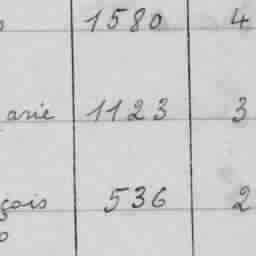 1580 4
arie 1123 3
çois 536 2